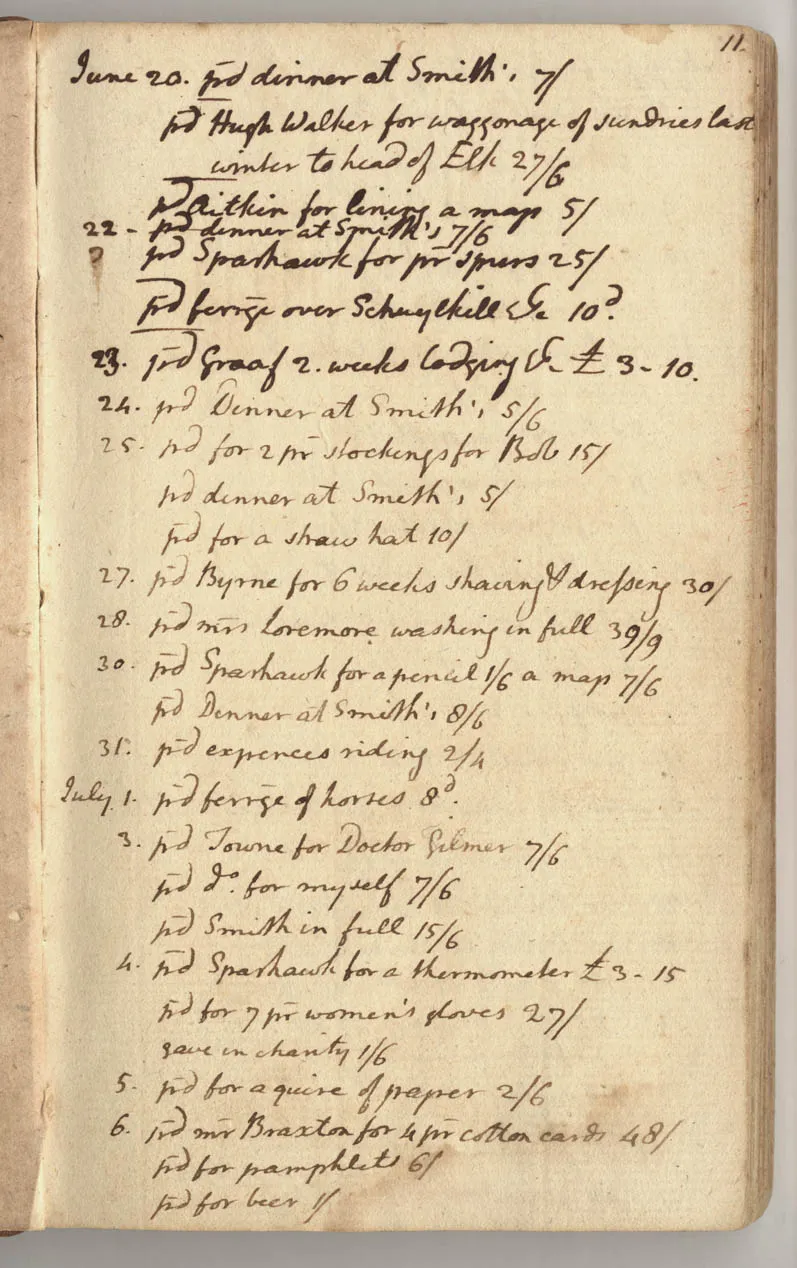 11.
June 20. pd dinner at Smith's 7/
pd Hugh Walker for waggonage of sundries last
winter to head of Elk 27/6
pd Aitkin for lining a map 5/
22 - pd dinner at Smith's 7/6
? pd Sparhawk for pr spurs 25/
pd ferrge over Schuylkill &c 10d.
23. pd Graaf 2. weeks lodging &c £ 3-10.
24. pd Dinner at Smith's 5/6
25. pd for 2 pr stockings for Bob 15/
pd dinner at Smith's 5/
pd for a straw hat 10/
27. pd Byrne for 6 weeks shaving & dressing 30/
28. pd mrs Loremore washing in full 39/9
30. pd Sparhawk for a pencil 1/6 a map 7/6
pd Dinner at Smith's 8/6
31. pd expences riding 2/4
July 1. pd ferrge of horses 8d.
3. pd Towne for Doctor Gilmer 7/6
pd do. for myself 7/6
pd Smith in full 15/6
4. pd Sparhawk for a thermometer £ 3-15
pd for 7 pr women's gloves 27/
gave in charity 1/6
5. pd for a quire of paper 2/6
6. pd mr Braxton for 4 pr cotton cards 48/
pd for pamphlets 6/
pd for beer 1/